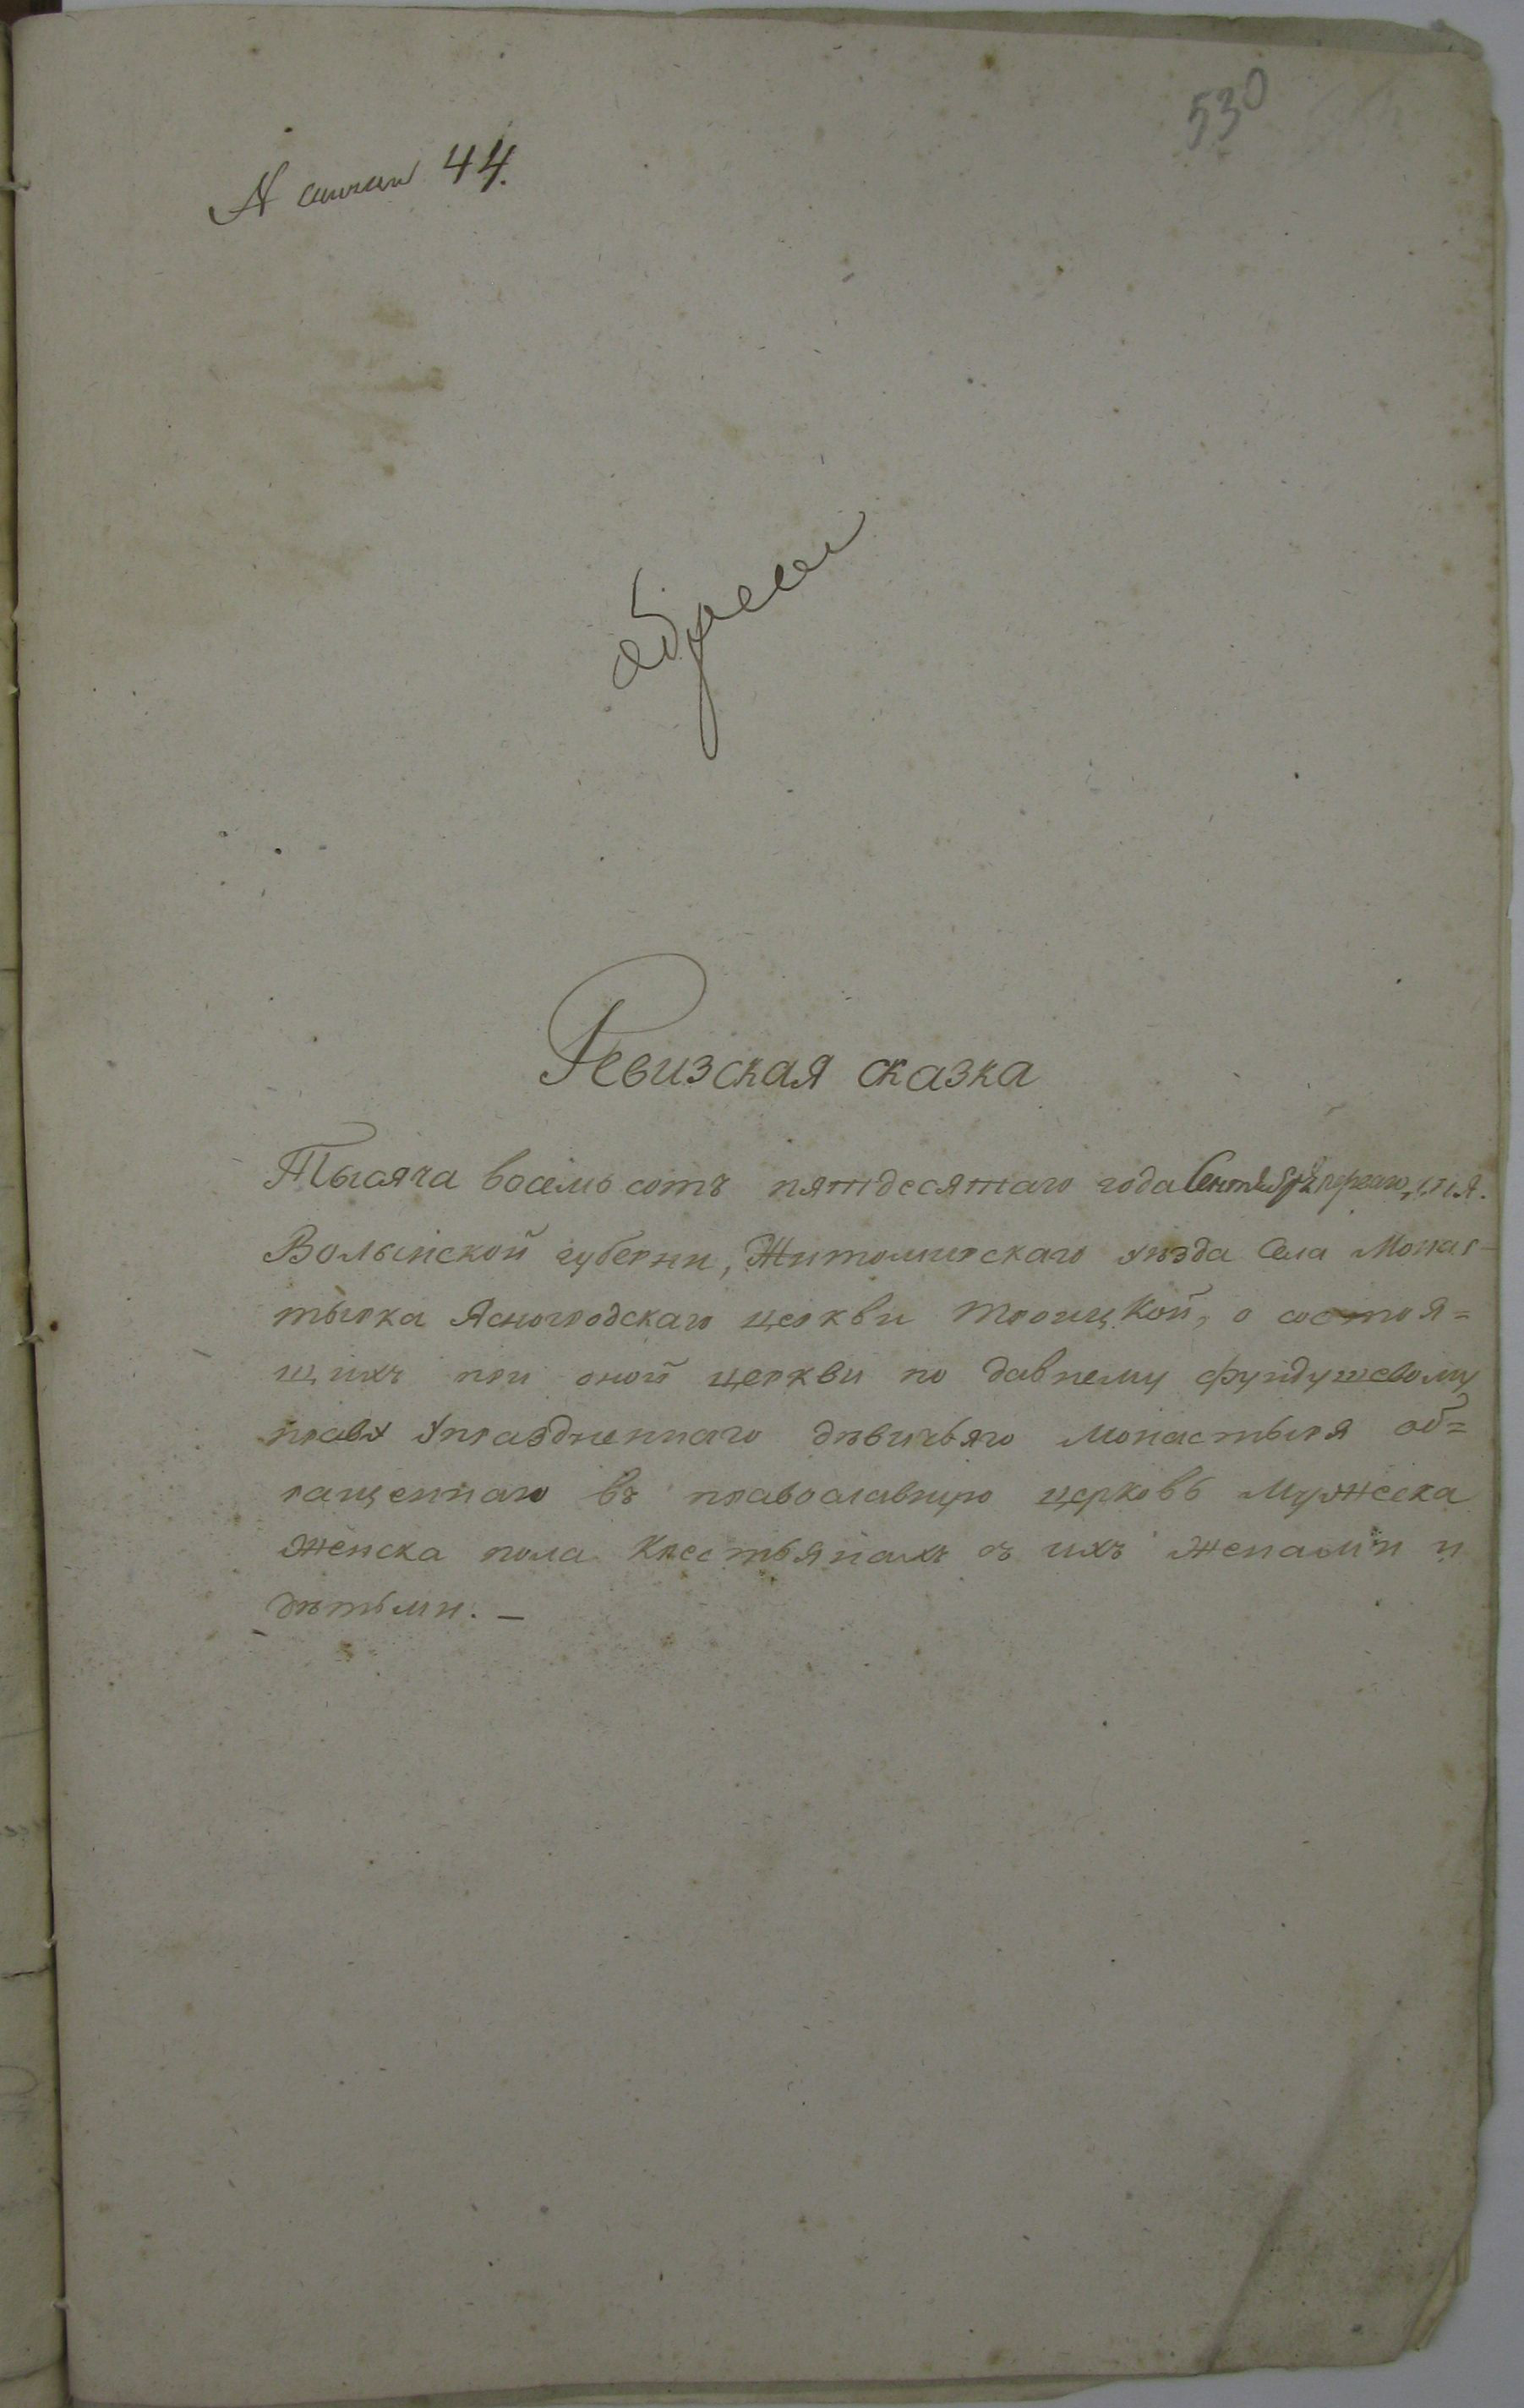 530
44.
Ревизская сказка
Тысяча восемь сотъ пятдесятаго года Сентября перваго дня.
Волынской губерни, Житомирскаго уѣзда Села Монас-
тырка Ясногродскаго церкви Троицкой, о состоя=
щихъ при оной церкви по давнему фундушевому
праву Упраздненнаго дѣвичьяго монастыря об=
ращеннаго въ православную церковь мужеска
женска пола Крестьянахъ съ ихъ женами и
дѣтьми. —